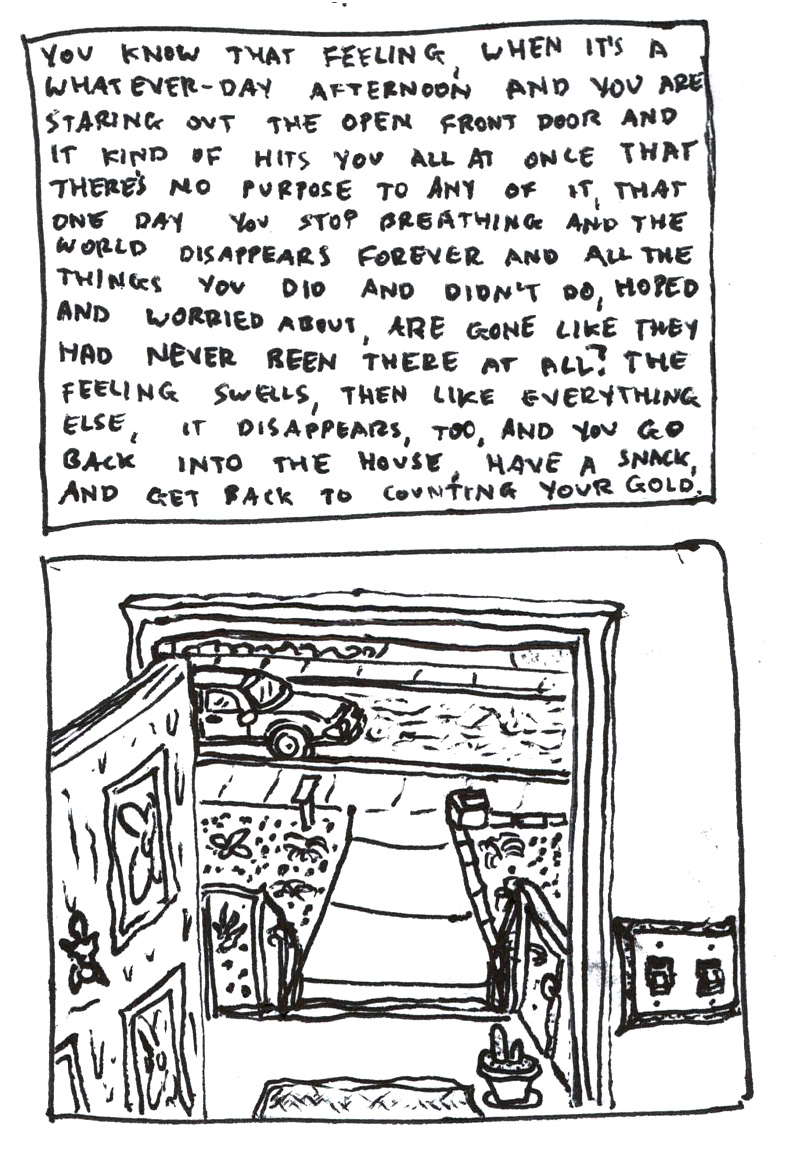 YOU KNOW THAT FEELING, WHEN IT'S A
WHATEVER-DAY AFTERNOON AND YOU ARE
STARING OUT THE OPEN FRONT DOOR AND
IT KIND OF HITS YOU ALL AT ONCE THAT
THERE'S NO PURPOSE TO ANY OF IT, THAT
ONE DAY YOU STOP BREATHING AND THE
WORLD DISAPPEARS FOREVER AND ALL THE
THINGS YOU DID AND DIDN'T DO, HOPED
AND WORRIED ABOUT, ARE GONE LIKE THEY
HAD NEVER BEEN THERE AT ALL? THE
FEELING SWELLS, THEN LIKE EVERYTHING
ELSE, IT DISAPPEARS, TOO, AND YOU GO
BACK INTO THE HOUSE, HAVE A SNACK,
AND GET BACK TO COUNTING YOUR GOLD.